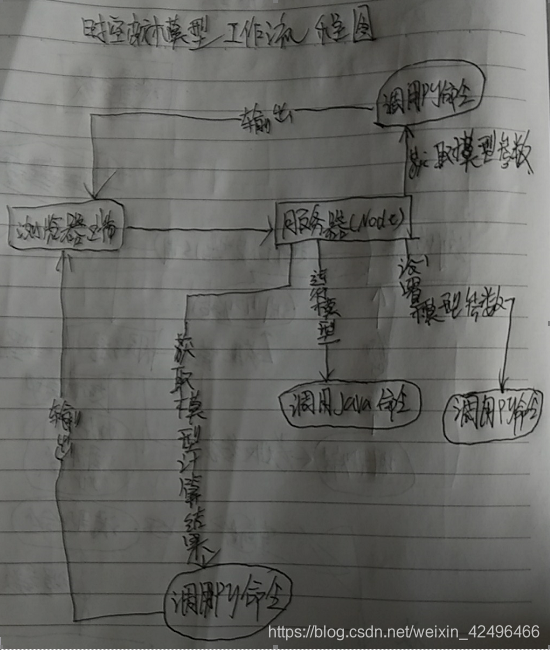 时空献水模型 工作流 程图
调用py命令
输出
获取模型参数
浏览器上传
服务器(Node)
运行模型
设置模型参数
调用Java命令
调用py命令
获取模型计算结果
输出
调用py命令
https://blog.csdn.net/weixin_42496466